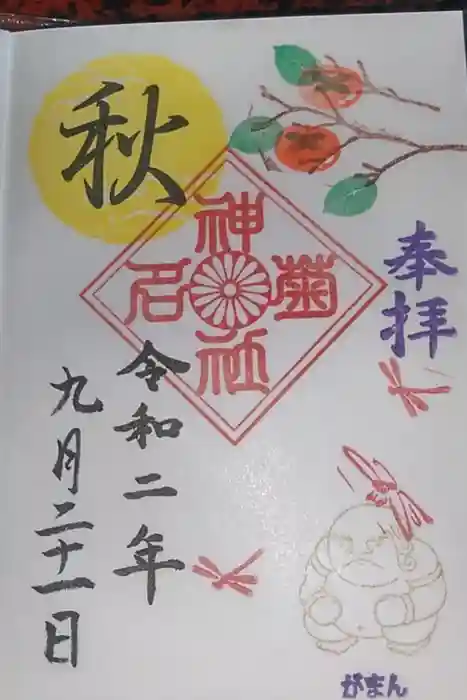 奉拝
秋
菊名神社
令和二年
九月二十一日
がまん